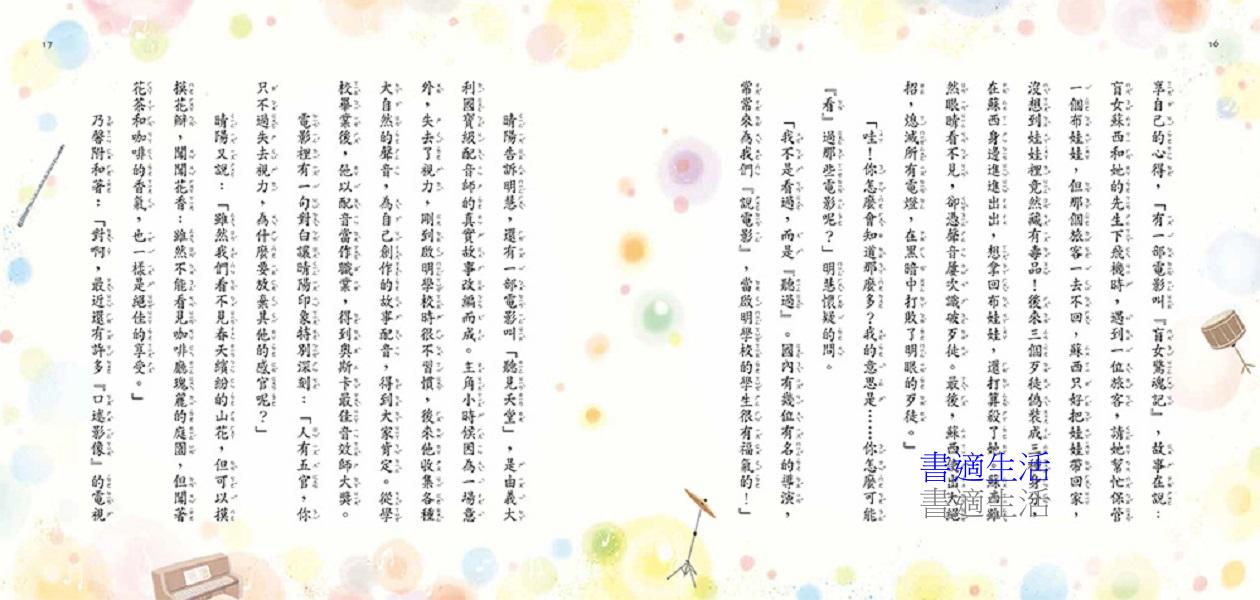 16
享自己的心得，「有一部電影叫『盲女驚魂記』，故事在說：
盲女蘇西和她的先生下飛機時，遇到一位旅客，請她幫忙保管
一個布娃娃，但那個旅客一去不回，蘇西只好把娃娃帶回家，
沒想到娃娃裡竟然藏有毒品！後來三個歹徒偽裝成三種身分，
在蘇西身邊進進出出，想拿回布娃娃，還打算殺了她。蘇西雖
然眼睛看不見，卻憑聲音屢次識破歹徒。最後，蘇西使出大絕
招，熄滅所有電燈，在黑暗中打敗了明眼的歹徒。」
「哇！你怎麼會知道那麼多？我的意思是……你怎麼可能
『看』過那些電影呢？」明慧懷疑的問。
「我不是看過，而是『聽過』。國內有幾位有名的導演，
常常來為我們『說電影』，當啟明學校的學生很有福氣的！」
17
晴陽告訴明慧，還有一部電影叫「聽見天堂」，是由義大
利國寶級配音師的真實故事改編而成。主角小時候因為一場意
外，失去了視力，剛到啟明學校時很不習慣，後來他收集各種
大自然的聲音，為自己創作的故事配音，得到大家肯定。從學
校畢業後，他以配音當作職業，得到奧斯卡最佳音效師大獎。
電影裡有一句對白讓晴陽印象特別深刻：「人有五官，你
只不過失去視力，為什麼要放棄其他的感官呢？」
晴陽又說：「雖然我們看不見春天繽紛的山花，但可以摸
摸花瓣，聞聞花香；雖然不能看見咖啡廳瑰麗的庭園，但聞著
花茶和咖啡的香氣，也一樣是絕佳的享受。」
乃馨附和著：「對啊，最近還有許多『口述影像』的電視
書適生活
書適生活